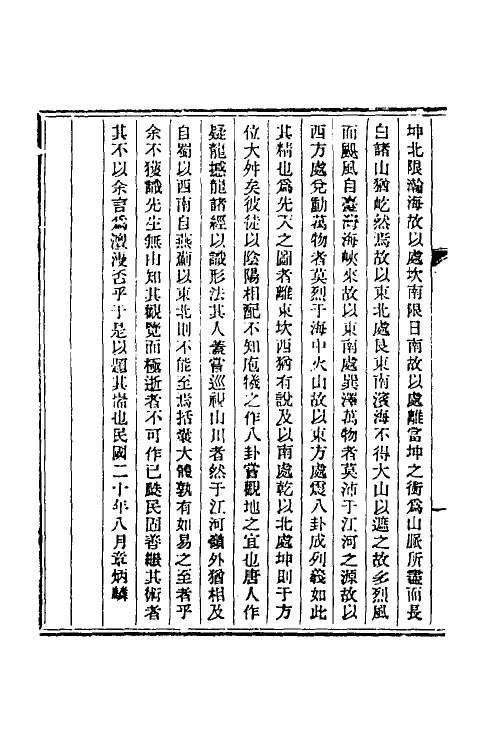 坤北限瀚海故以處坎南限日南故以處離當坤之衝爲山脈所盡而長
白諸山猶屹然焉故以東北處艮東南濱海不得大山以遮之故多烈風
而颶風自臺灣海峽來故以東南處巽澤萬物者莫沛于江河之源故以
西方處兌動萬物者莫烈于海中火山故以東方處震八卦成列義如此
其精也爲先天之圖者離東坎西猶有說及以南處乾以北處坤則于方
位大舛矣彼徒以陰陽相配不知庖犧之作八卦嘗觀地之宜也唐人作
疑龍撼龍諸經以識形法其人蓋嘗巡視山川者然于江河嶺外猶相及
自蜀以西南自燕薊以東北則不能至焉括囊大體孰有如易之至者乎
余不獲識先生無由知其觀覽而極逝者不可作已駿民固善繼其術者
其不以余言爲瀾漫否乎于是以題其耑也民國二十年八月章炳麟